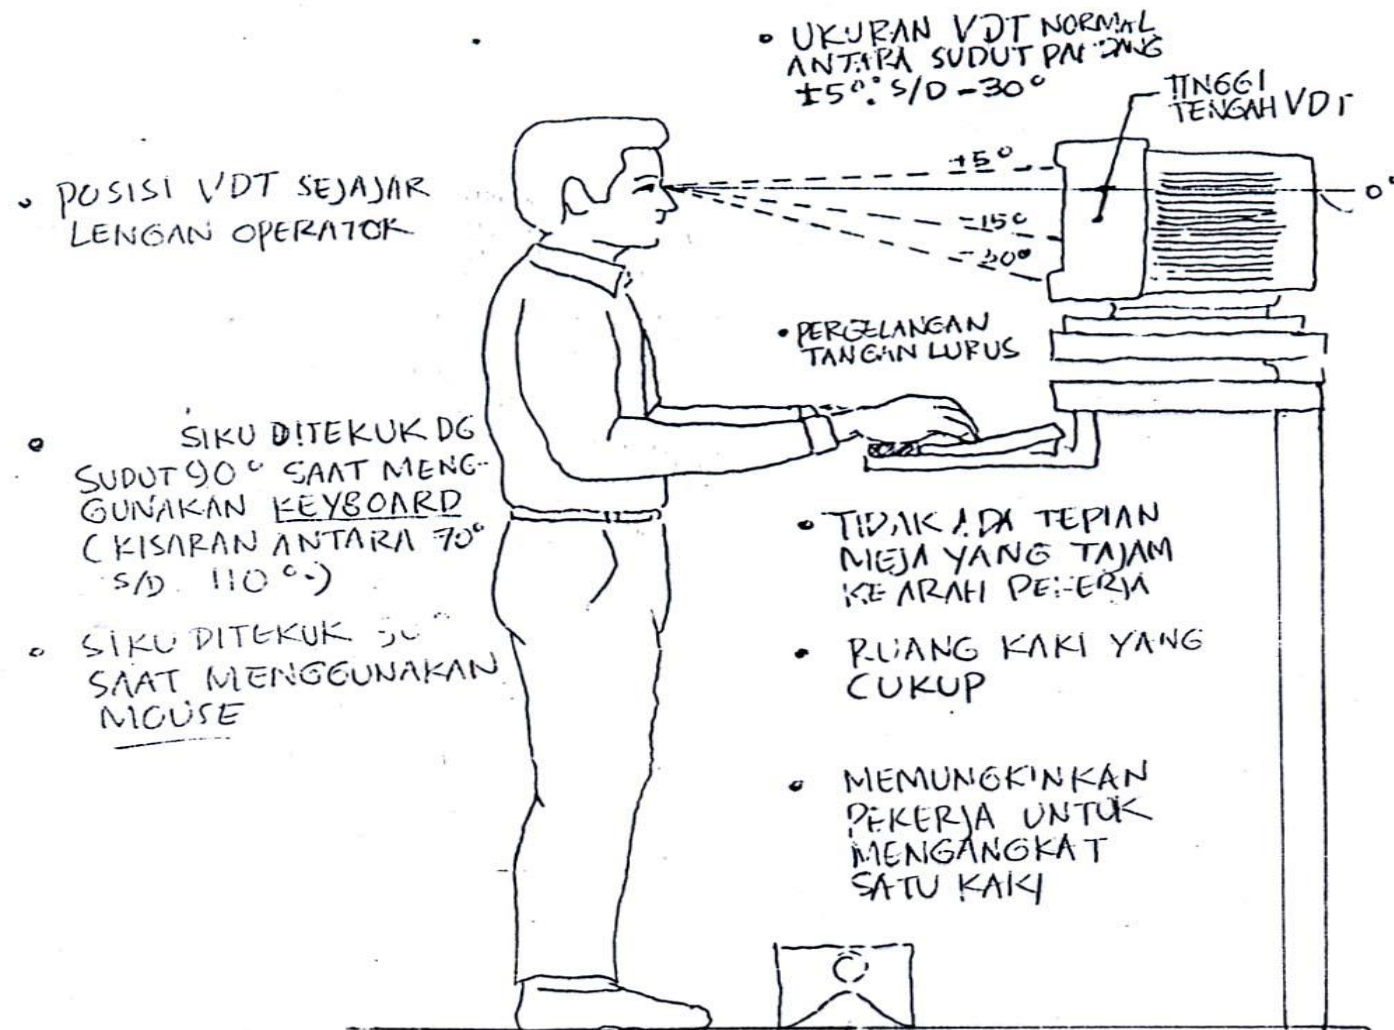 • UKURAN VDT NORMAL
ANTARA SUDUT PANDANG
±5° S/D -30°
TINGGI
TENGAH VDT
• POSISI VDT SEJAJAR
LENGAN OPERATOR
+5°
0°
-15°
-30°
• PERGELANGAN
TANGAN LURUS
• SIKU DITEKUK DG
SUDUT 90° SAAT MENG-
GUNAKAN KEYBOARD
(KISARAN ANTARA 70°
S/D 110°)
• SIKU DITEKUK
SAAT MENGGUNAKAN
MOUSE
• TIDAK ADA TEPIAN
MEJA YANG TAJAM
KE ARAH PEKERJA
• RUANG KAKI YANG
CUKUP
• MEMUNGKINKAN
PEKERJA UNTUK
MENGANGKAT
SATU KAKI